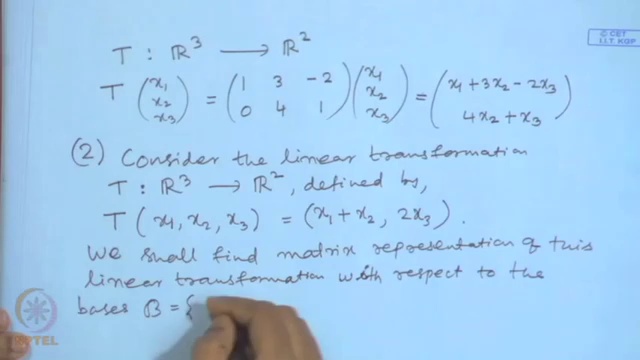 © CET
I.I.T. KGP
T : ℝ³ ⟶ ℝ²
T (x₁ x₂ x₃) = (1 3 -2 0 4 1) (x₁ x₂ x₃) = (x₁ + 3x₂ - 2x₃ 4x₂ + x₃)
(2) Consider the linear transformation
T : ℝ³ ⟶ ℝ², defined by,
T (x₁, x₂, x₃) = (x₁ + x₂, 2x₃) .
We shall find matrix representation of this
linear transformation with respect to the
bases B = {
NPTEL